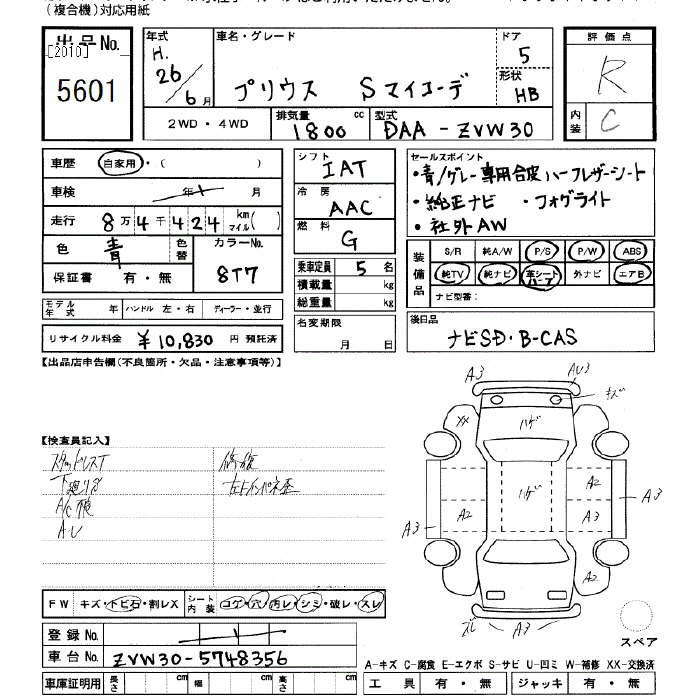 (複合機)対応用紙
出品No.
[2010]
5601
年式
H.
26/6月
車名・グレード
プリウス Sマイコーデ
ドア
5
形状
HB
評価点
R
内装
C
2WD・4WD
排気量
1800 cc
型式
DAA-ZVW30
車歴 自家用・( )
車検 年 月
走行 8万4千424 km マイル( )
色 青
色替
カラーNo.
8T7
保証書 有・無
モデル年式 年 ハンドル 左・右 ディーラー・並行
リサイクル料金 ¥10,830 円 預託済
シフト
IAT
冷房
AAC
燃料
G
乗車定員 5 名
積載量 kg
総重量 kg
名変期限
月 日
セールスポイント
・青/グレー専用合皮ハーフレザーシート
・純正ナビ ・フォグライト
・社外AW
装備品
S/R 純A/W P/S P/W ABS
純TV 純ナビ 革シート ハーフ 外ナビ エアB
ナビ型番:
後日品
ナビSD・B-CAS
【出品店申告欄(不良箇所・欠品・注意事項等)】
【検査員記入】
下廻りサビ
修復
AU
A3
キズ
XX
ハゲ
A2
A2
ハゲ
A3
A3
A3
A2
A3
スペア
FW キズ・トビ石・割レX
シート内装 コゲ・穴・汚レ・シミ・破レ・スレ
登録No.
車台No. ZVW30-5748356
A-キズ C-腐食 E-エクボ S-サビ U-凹ミ W-補修 XX-交換済
車庫証明用 長さ cm 幅 cm 高さ cm
工具 有・無 ジャッキ 有・無